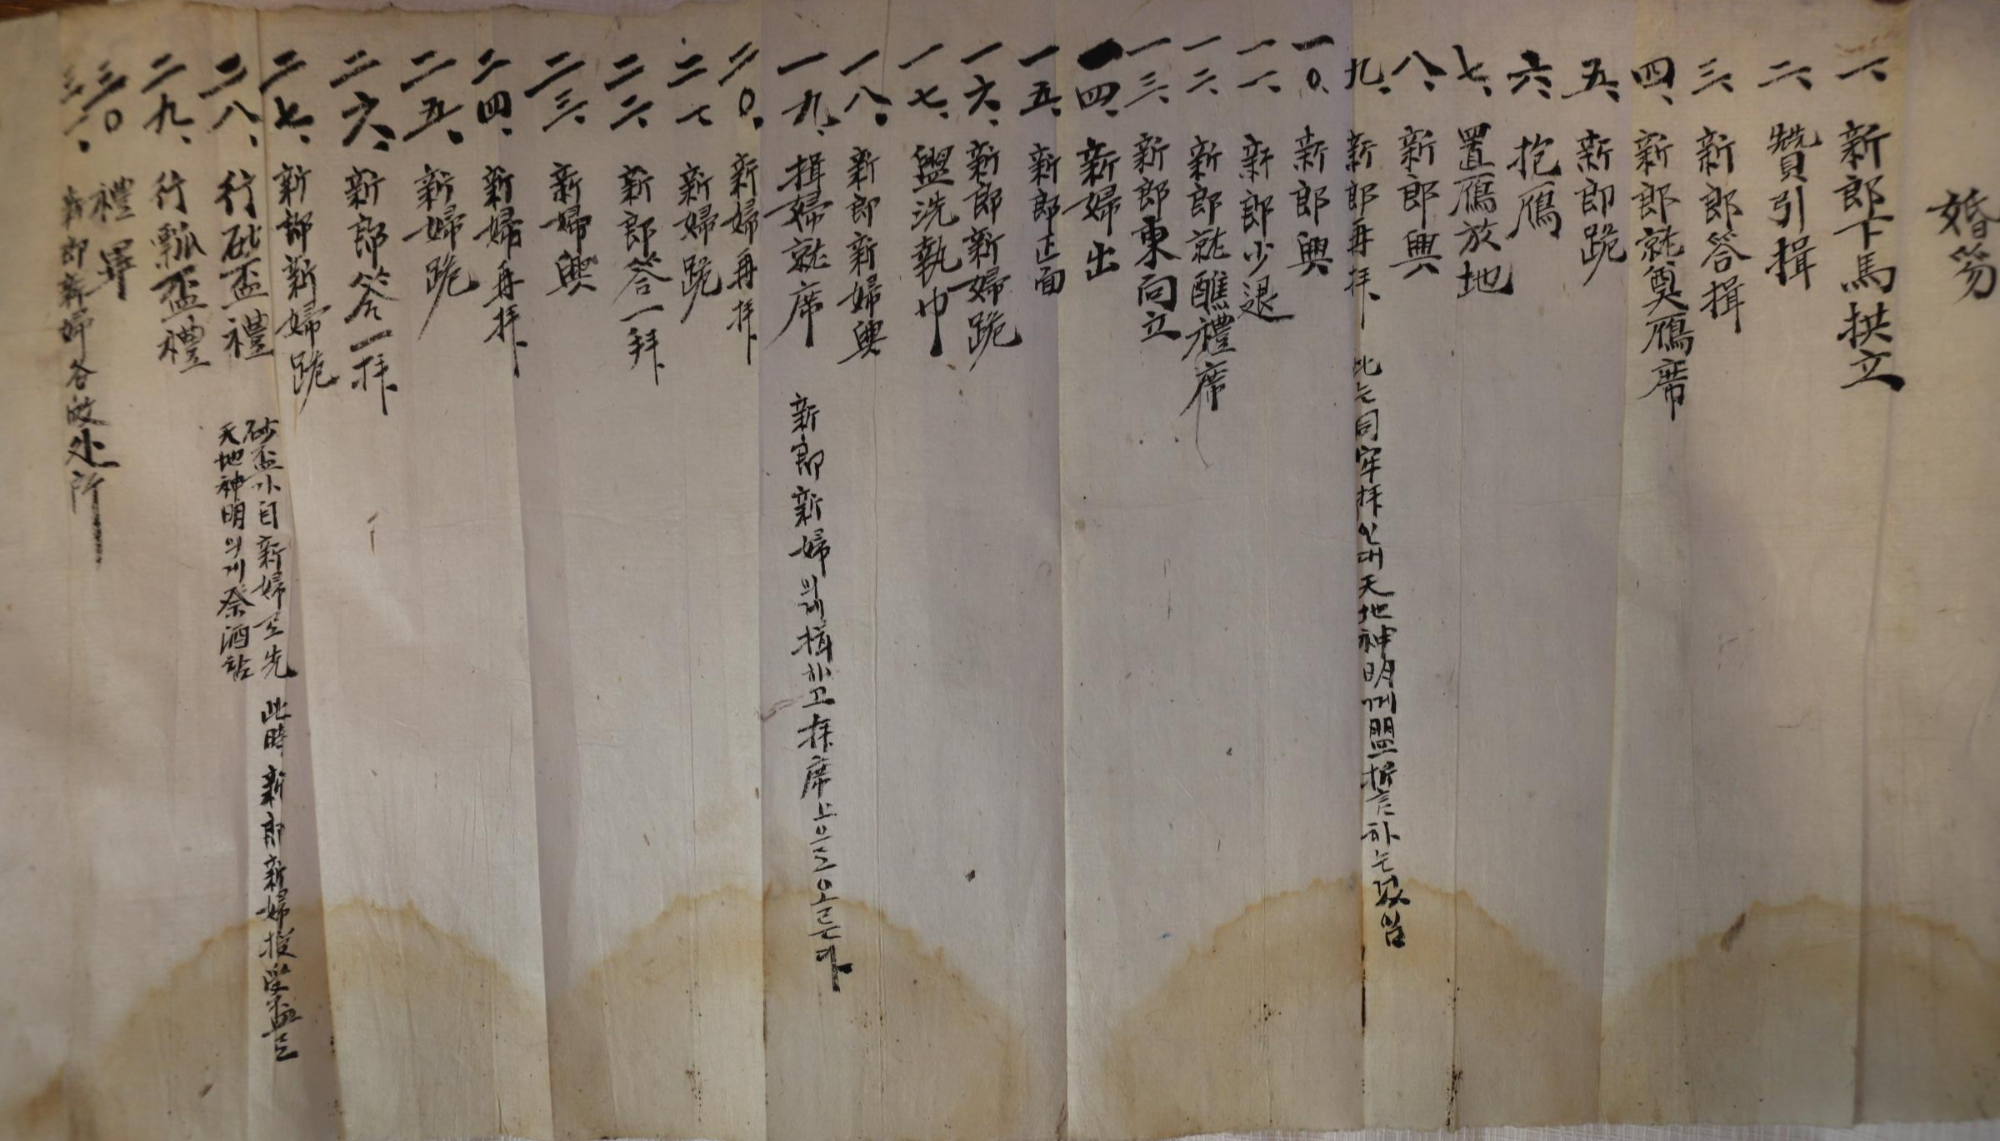 婚笏
一、新郎下馬拱立
二、贊引揖
三、新郎答揖
四、新郎就奠鴈席
五、新郎跪
六、抱鴈
七、置鴈放地
八、新郎興
九、新郎再拜 此는同牢拜인대天地神明께盟誓하는 임
一〇、新郎興
一一、新郎少退
一二、新郎就醮禮席
一三、新郎東向立
一四、新婦出
一五、新郎正面
一六、新郎新婦跪
一七、盥洗執巾
一八、新郎新婦興
一九、揖婦就席 新郎新婦의게揖하고拜席上으로오른다
二〇、新婦再拜
二一、新婦跪
二二、新郎答一拜
二三、新婦興
二四、新婦再拜
二五、新婦跪
二六、新郎答一拜
二七、新郎新婦跪
二八、行砂盃禮 砂盃 自新婦로先 此時新郎新婦 受盃로
天地神明의게祭酒
二九、行瓢盃禮
三〇、禮畢
三一、新郎新婦各 处所